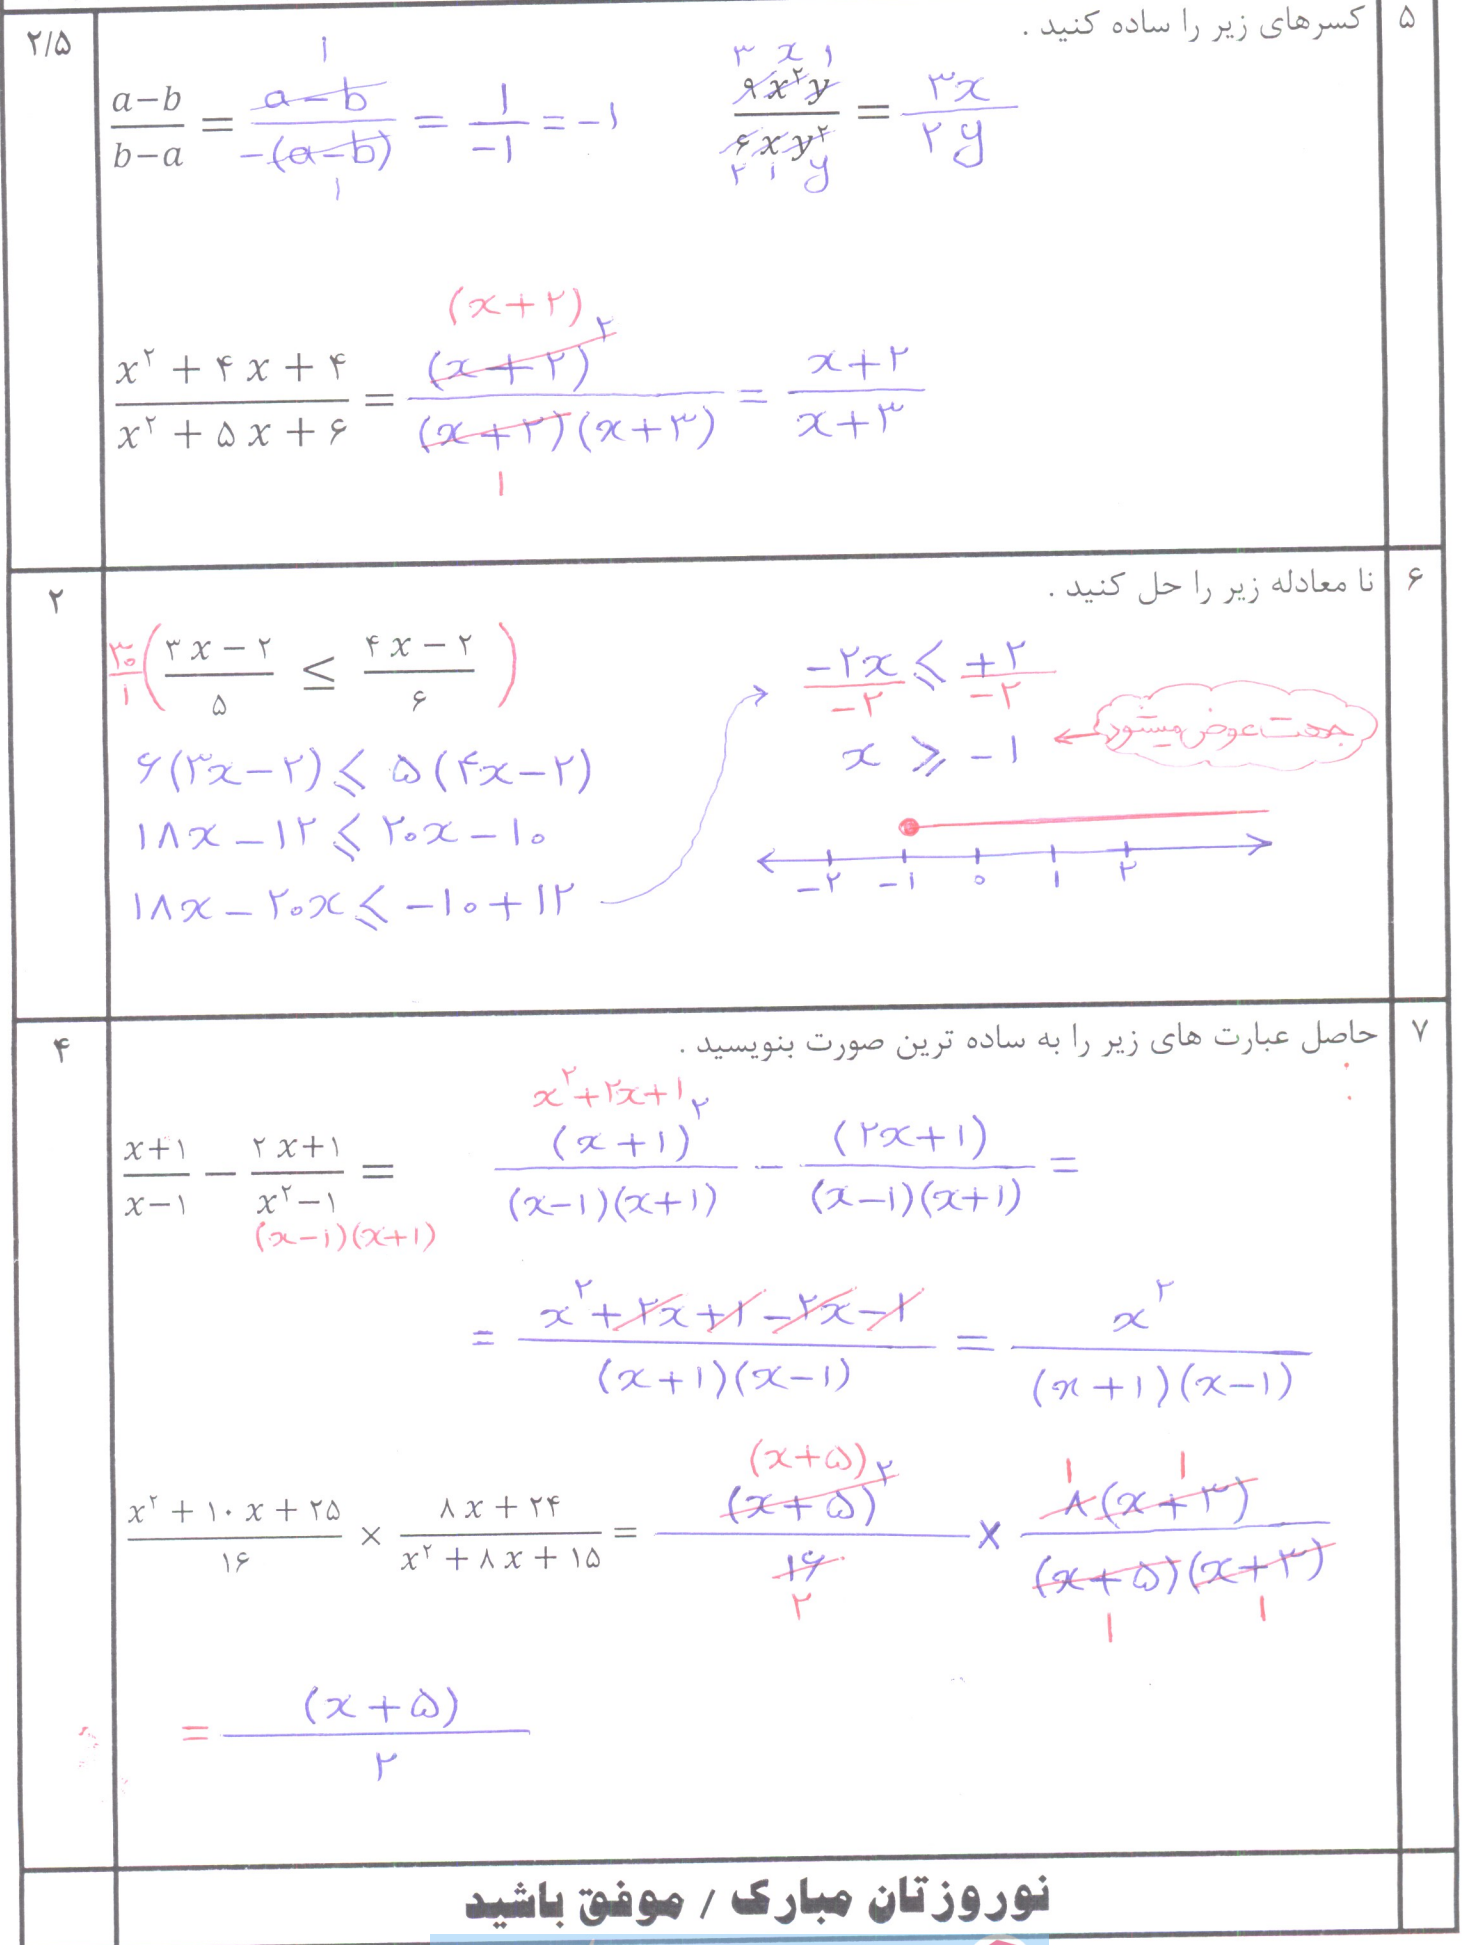 ۵ کسرهای زیر را ساده کنید . ۲/۵
۱ ۳ x ۱
(a-b)/(b-a) = (a-b)/(-(a-b)) = ۱/-۱ = -۱ (۹x²y)/(۶xy²) = ۳x/۲y
۱ ۲ ۱ y
(x+۲)
(x²+۴x+۴)/(x²+۵x+۶) = (x+۲)²/((x+۲)(x+۳)) = (x+۲)/(x+۳)
۱
۶ نا معادله زیر را حل کنید . ۲
۳۰/۱ ((۳x-۲)/۵ ≤ (۴x-۲)/۶)
۶(۳x-۲) ≤ ۵(۴x-۲)
۱۸x-۱۲ ≤ ۲۰x-۱۰
۱۸x-۲۰x ≤ -۱۰+۱۲
-۲x/-۲ ≤ +۲/-۲
x ≥ -۱ جهت عوض میشود
-۲ -۱ ۰ ۱ ۲
۷ حاصل عبارت های زیر را به ساده ترین صورت بنویسید . ۴
x²+۲x+۱
(x+۱)/(x-۱) - (۲x+۱)/(x²-۱) = (x+۱)²/((x-۱)(x+۱)) - (۲x+۱)/((x-۱)(x+۱)) =
(x-۱)(x+۱)
= (x²+۲x+۱-۲x-۱)/((x+۱)(x-۱)) = x²/((x+۱)(x-۱))
(x+۵) ۱ ۱
(x²+۱۰x+۲۵)/۱۶ × (۸x+۲۴)/(x²+۸x+۱۵) = (x+۵)²/۱۶ × ۸(x+۳)/((x+۵)(x+۳))
۲ ۱ ۱
= (x+۵)/۲
نوروزتان مبارک / موفق باشید